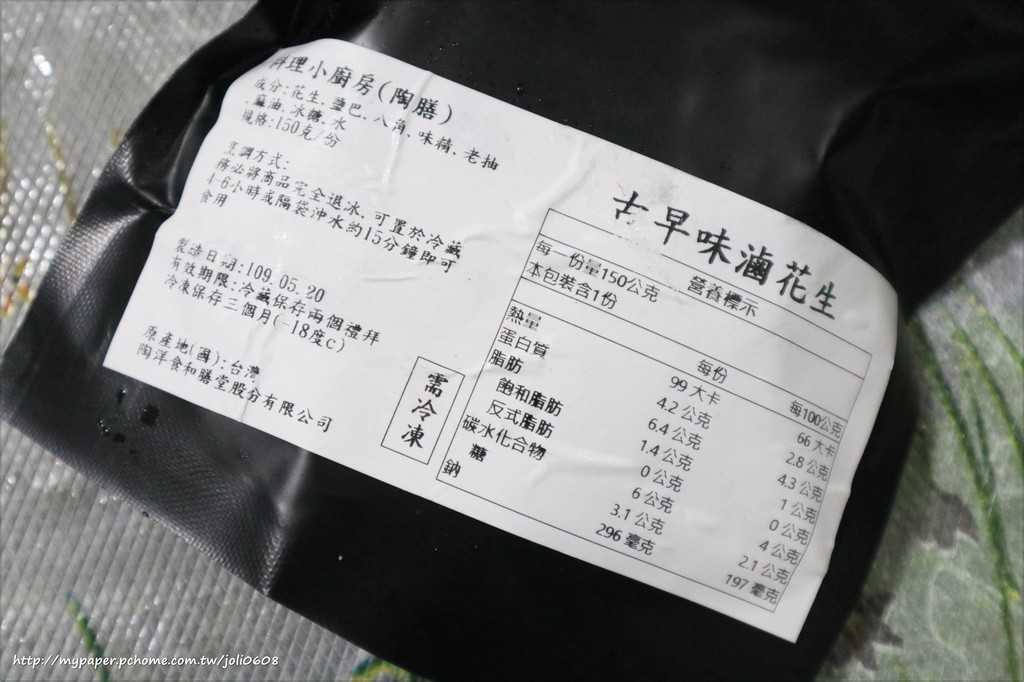 料理小廚房(陶膳)
成分:花生、鹽巴、八角、味精、老抽
、麻油、冰糖、水
規格:150克/份
烹調方式:
務必將商品完全退冰,可置於冷藏
4-6小時或隔袋沖水約15分鐘即可
食用
製造日期:109.05.20
有效期限:冷藏保存兩個禮拜
冷凍保存三個月(-18度C)
原產地(國):台灣
陶洋食和膳堂股份有限公司
需冷凍
古早味滷花生
營養標示
每一份量150公克
本包裝含1份
每份 每100公克
熱量 99 大卡 66 大卡
蛋白質 4.2 公克 2.8 公克
脂肪 6.4 公克 4.3 公克
飽和脂肪 1.4 公克 1 公克
反式脂肪 0 公克 0 公克
碳水化合物 6 公克 4 公克
糖 3.1 公克 2.1 公克
鈉 296 毫克 197 毫克
http://mypaper.pchome.com.tw/joli0608